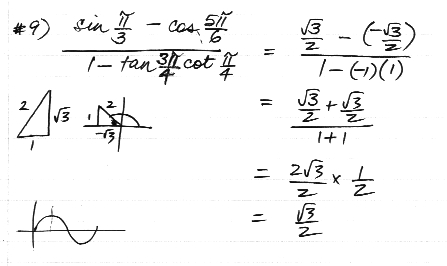 #9) (sin π/3 - cos 5π/6) / (1 - tan 3π/4 cot π/4) = (√3/2 - (-√3/2)) / (1 - (-1)(1))
2 √3 1 1 2 -√3
= (√3/2 + √3/2) / (1 + 1)
= 2√3/2 × 1/2
= √3/2